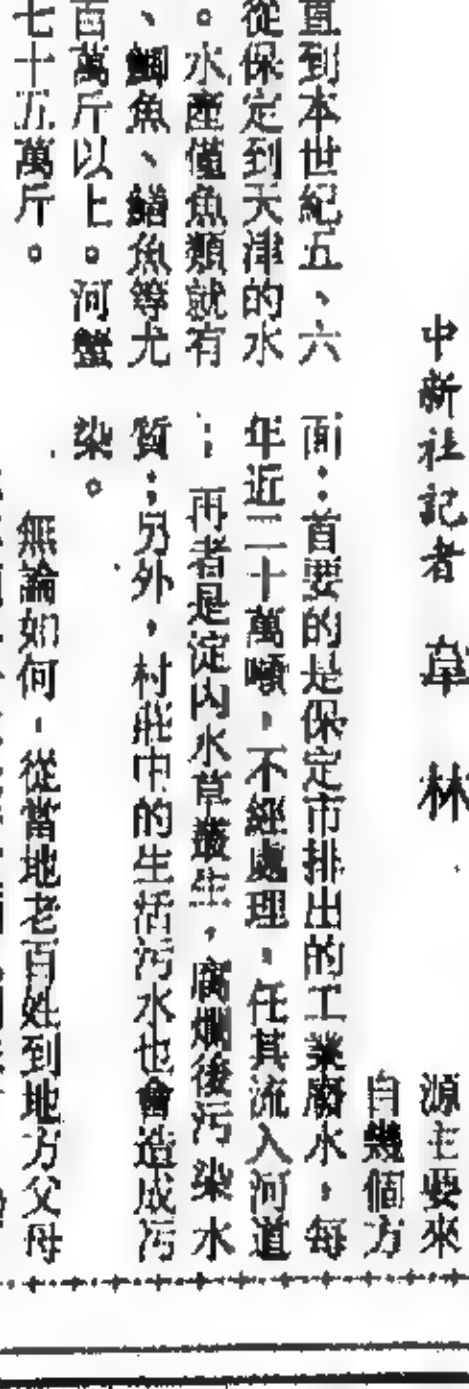 中新社記者 韋林
源主要來
自幾個方
面：首要的是保定市排出的工業廢水，每
年近二十萬噸，不經處理，任其流入河道
；再者是淀內水草叢生，腐爛後污染水
質；另外，村莊中的生活污水也會造成污
染。
無論如何，從當地老百姓到地方父母
直到本世紀五、六
從保定到天津的水
。水產僅魚類就有
、鯽魚、鱔魚等尤
百萬斤以上。河蟹
七十五萬斤。